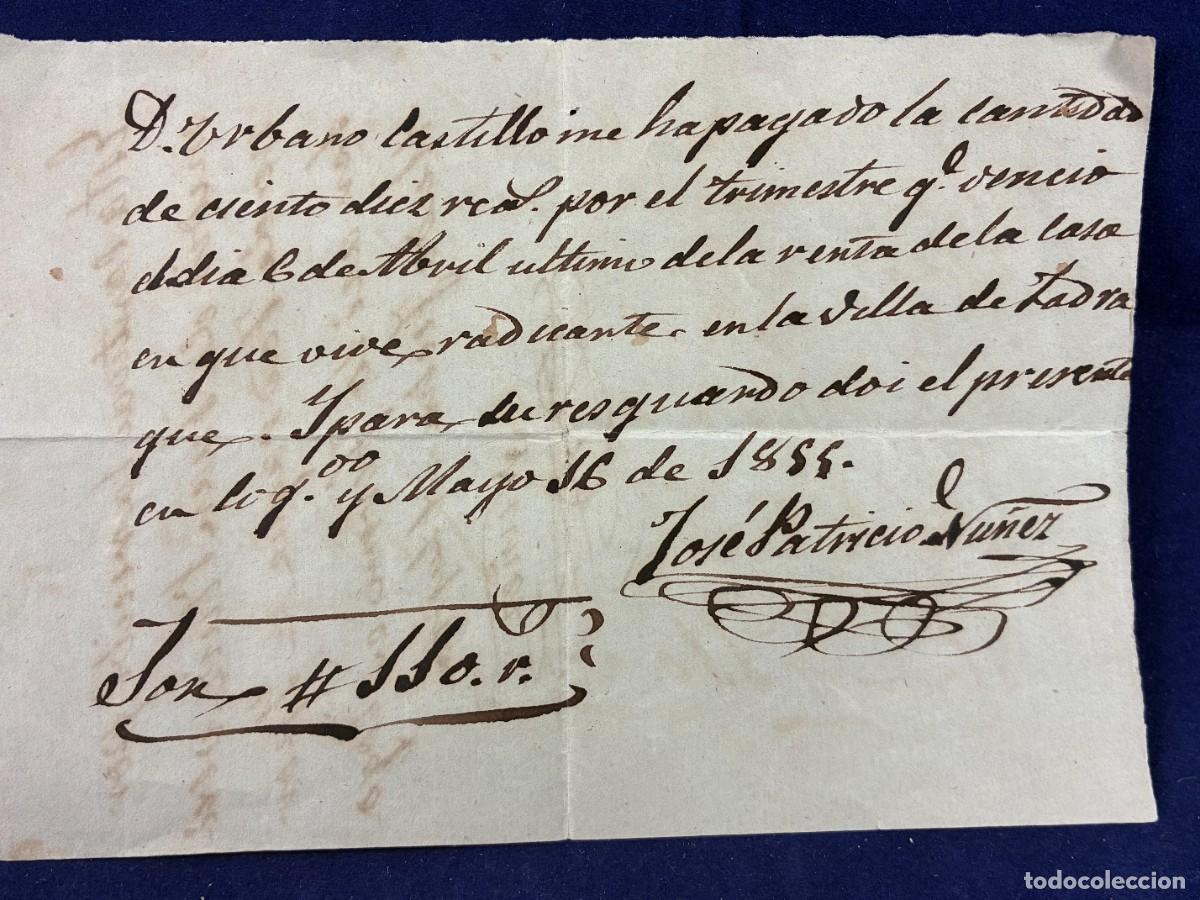 D. Urbano Castillo me ha pagado la cantidad
de ciento diez reas. por el trimestre q.e vencio
el dia 6 de Abril ultimo de la renta de la casa
en que vive radicante en la villa de Zadra
que. Y para su resguardo doi el presente
en Log.oo y Mayo 16 de 1855.
José Patricio Nuñez
Son # 110. r.
todocoleccion